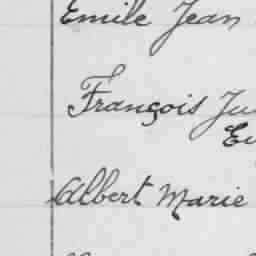 Emile Jean
François Ju
Eu
Albert Marie